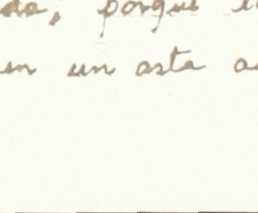 do, porque
en un asta a